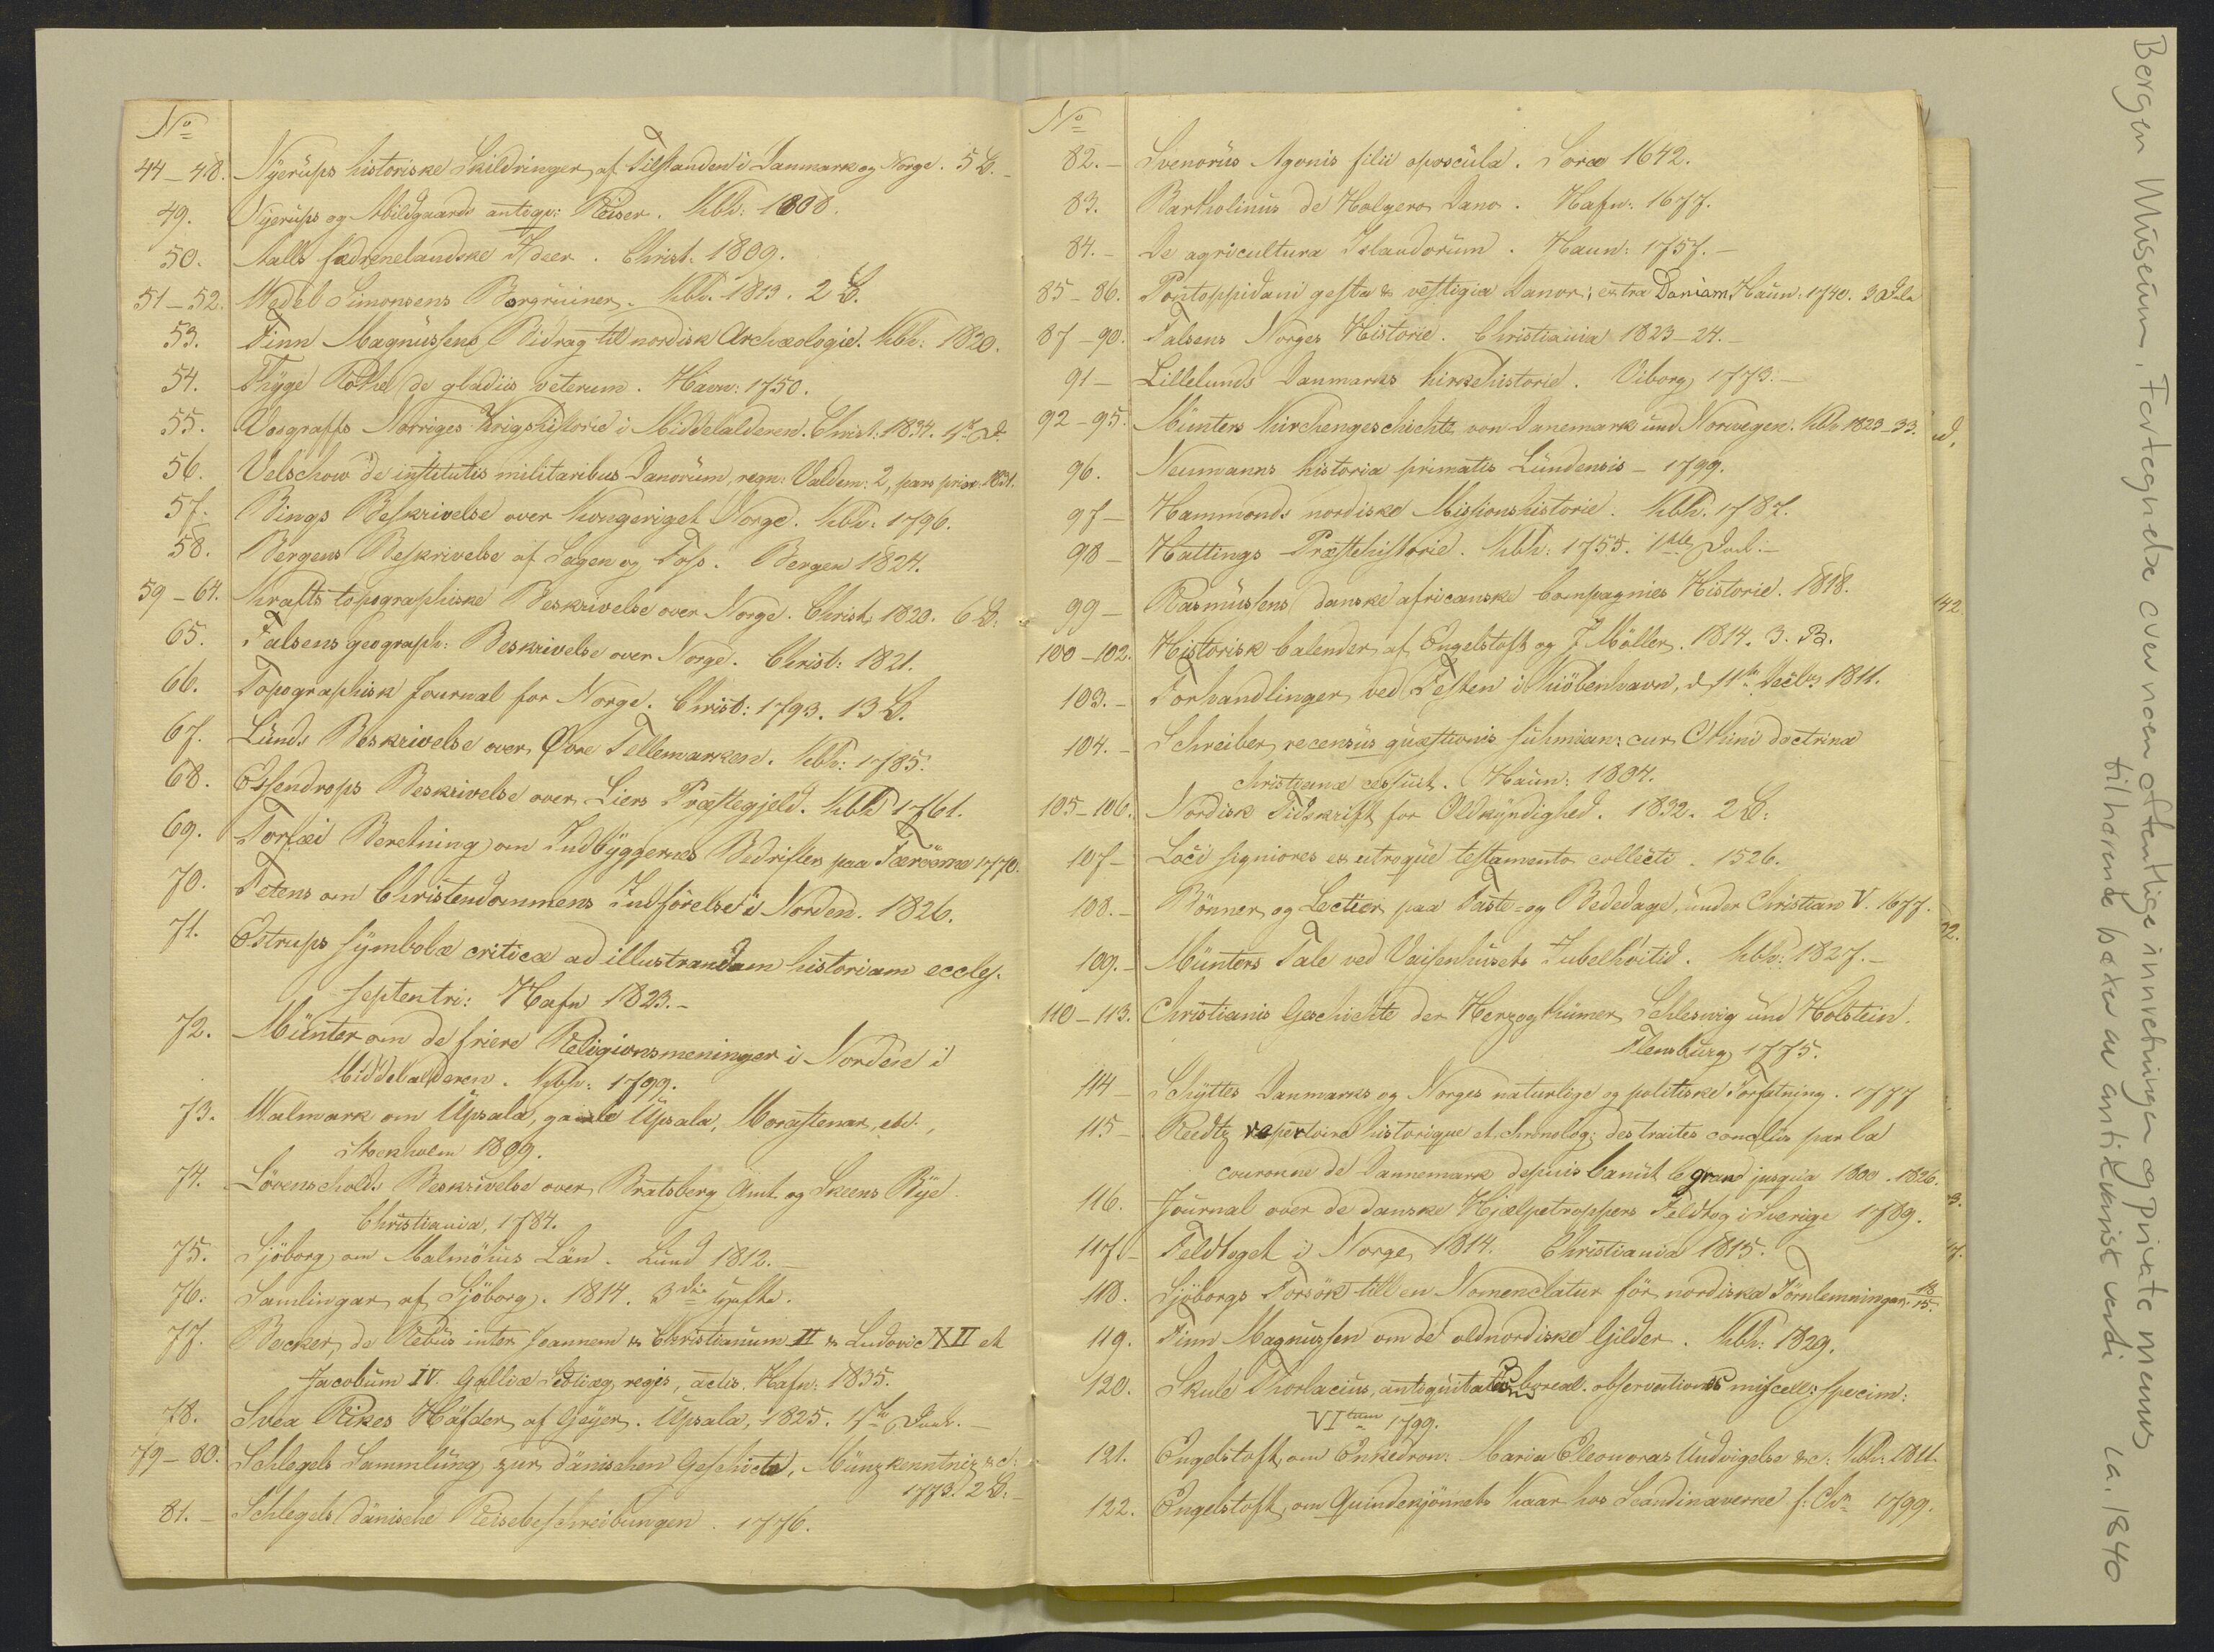 No
44-48. Nyerups historiske Skildringer af Tilstanden i Danmark og Norge. 5 B.
49. Nyerups og Abildgaards antiqv: Reiser. Kbh: 1808.
50. Aalls fædrenelandske Ideer. Christ. 1809.
51-52. Wedel Simonsens Borgruiner. Kbh. 1813. 2 B.
53. Finn Magnussens Bidrag til nordisk Archæologie. Kbh: 1820.
54. Thyge Rothe de gladiis veterum. Havn: 1750.
55. Vosgraffs Norriges Krigshistorie i Middelalderen. Christ: 1834. 1ste D.
56. Velschow de institutis militaribus Danorum, regn: Valdem: 2, pars prior 1831.
57. Bings Beskrivelse over Kongeriget Norge. Kbh: 1796.
58. Bergens Beskrivelse af Sagen og Foss. Bergen 1824.
59-64. Krafts topographiske Beskrivelse over Norge. Christ. 1820. 6 B.
65. Falsens geograph: Beskrivelse over Norge. Christ: 1821.
66. Topographisk Journal for Norge. Christ: 1793. 13 B.
67. Lunds Beskrivelse over Øvre Tellemarken. Kbh: 1785.
68. Essendrops Beskrivelse over Liers Præstegjeld. Kbh 1761.
69. Torfæi Beretning om Indbyggernes Bedrifter paa Færöerne 1770.
70. Tetens om Christendommens Indförelse i Norden. 1826.
71. Estrups symbolæ criticæ ad illustrandam historiam eccles.
septentri: Hafn 1823.-
72. Münter om de friere Religionsmeninger i Norden i
Middelalderen. Kbh: 1799.
73. Walmark om Upsala, gamle Upsala, Morastenar, etc.,
Stockholm 1809.
74. Lövenscholds Beskrivelse over Bratsberg Amt og Skeens Bye
Christiania, 1784.
75. Sjöborg om Malmöhus Län. Lund 1812.-
76. Samlingar af Sjöborg. 1814. 3die Häfte.
77. Becker de Rebus inter Joannem & Christianum II & Ludovic XII et
Jacobum IV. Galliæ Scotiæq regis, actis. Hafn: 1835.
78. Svea Rikes Häfder af Geijer. Upsala, 1825. 1ste Deel.-
79-80. Schlegels Sammlung zur dänischen Geschicte, Münzkenntniz &c:
1773. 2 B:-
81.- Schlegels dänische Reisebeschreibungen. 1776.
No
82.- Svenonis Agonis filii opuscula. Soræ 1642.
83. Bartholinus de Holgero Dano. Hafn: 1677.
84.- De agricultura Islandorum. Haun: 1757.-
85-86. Pontoppidani gesta & vestigia Danor: extra Daniam Haun: 1740. 3 Dele
87-90. Falsens Norges Historie. Christiania 1823-24.-
91- Lillelunds Danmarks Kirkehistorie. Viborg 1773.-
92-95. Münters Kirchengeschichte von Danemark und Norwegen. Kbh 1823-33.
96. Neumanns historia primatis Lundensis - 1799.
97- Hammonds nordiske Missionshistorie. Kbh. 1787.
98- Hattings Præstehistorie. Kbh: 1755. 1ste Deel.-
99- Rasmussens danske africanske Compagnies Historie. 1818.
100-102. Historisk Calender af Engelstoft og J Möller. 1814. 3. B.
103.- Forhandlinger ved Festen i Kiöbenhavn, d 11te Decbr 1811.
104.- Schreiber recensus quæstionis suhmian: cur Othini doctrina
christianæ cessuit. Haun: 1804.
105-106. Nordisk Tidskrift for Oldkyndighed. 1832. 2 B:
107- Loci signiores ex utroque testamento collecti. 1526.
108.- Bönner og Lectier paa Faste- og Bededage, under Christian V. 1677.
109.- Münters Tale ved Vaisenhusets Jubelhöitid. Kbh: 1827.-
110-113. Christianis Geschichte der Herzogthümer Schleswig und Holstein.
Flensburg 1775.
114- Schyttes Danmarks og Norges naturlige og politiske Forfatning. 1777
115- Reedtz repertoire historique et chronolog: des traites conclus par la
couronne de Dannemark depuis Canut le grand jusqua 1800. 1826.
116. Journal over de danske Hjælpetroppers Feldtog i Sverige 1789.
117.- Feldtoget i Norge 1814. Christiania 1815.
118. Sjöborgs Försök till en Nomenclatur för nordiska Fornlemningar. 18/15.
119. Finn Magnussen om de oldnordiske Gilder. Kbh: 1829.
120. Skule Thorlacius, antiquitatum boreal. observationes miscell: specim:
VItum 1799.
121. Engelstoft, om Enkedron: Maria Eleonoras Undvigelse &c: Kbh: 1811.
122. Engelstoft, om Quindekjönnets Kaar hos Scandinaverne f: Chr 1799.
d.
142.
32.
3.
17.
Bergen Museum. Fortegnelse over noen offentlige innretninger og private menns
tilhørende bøker av antikvarisk verdi ca. 1840